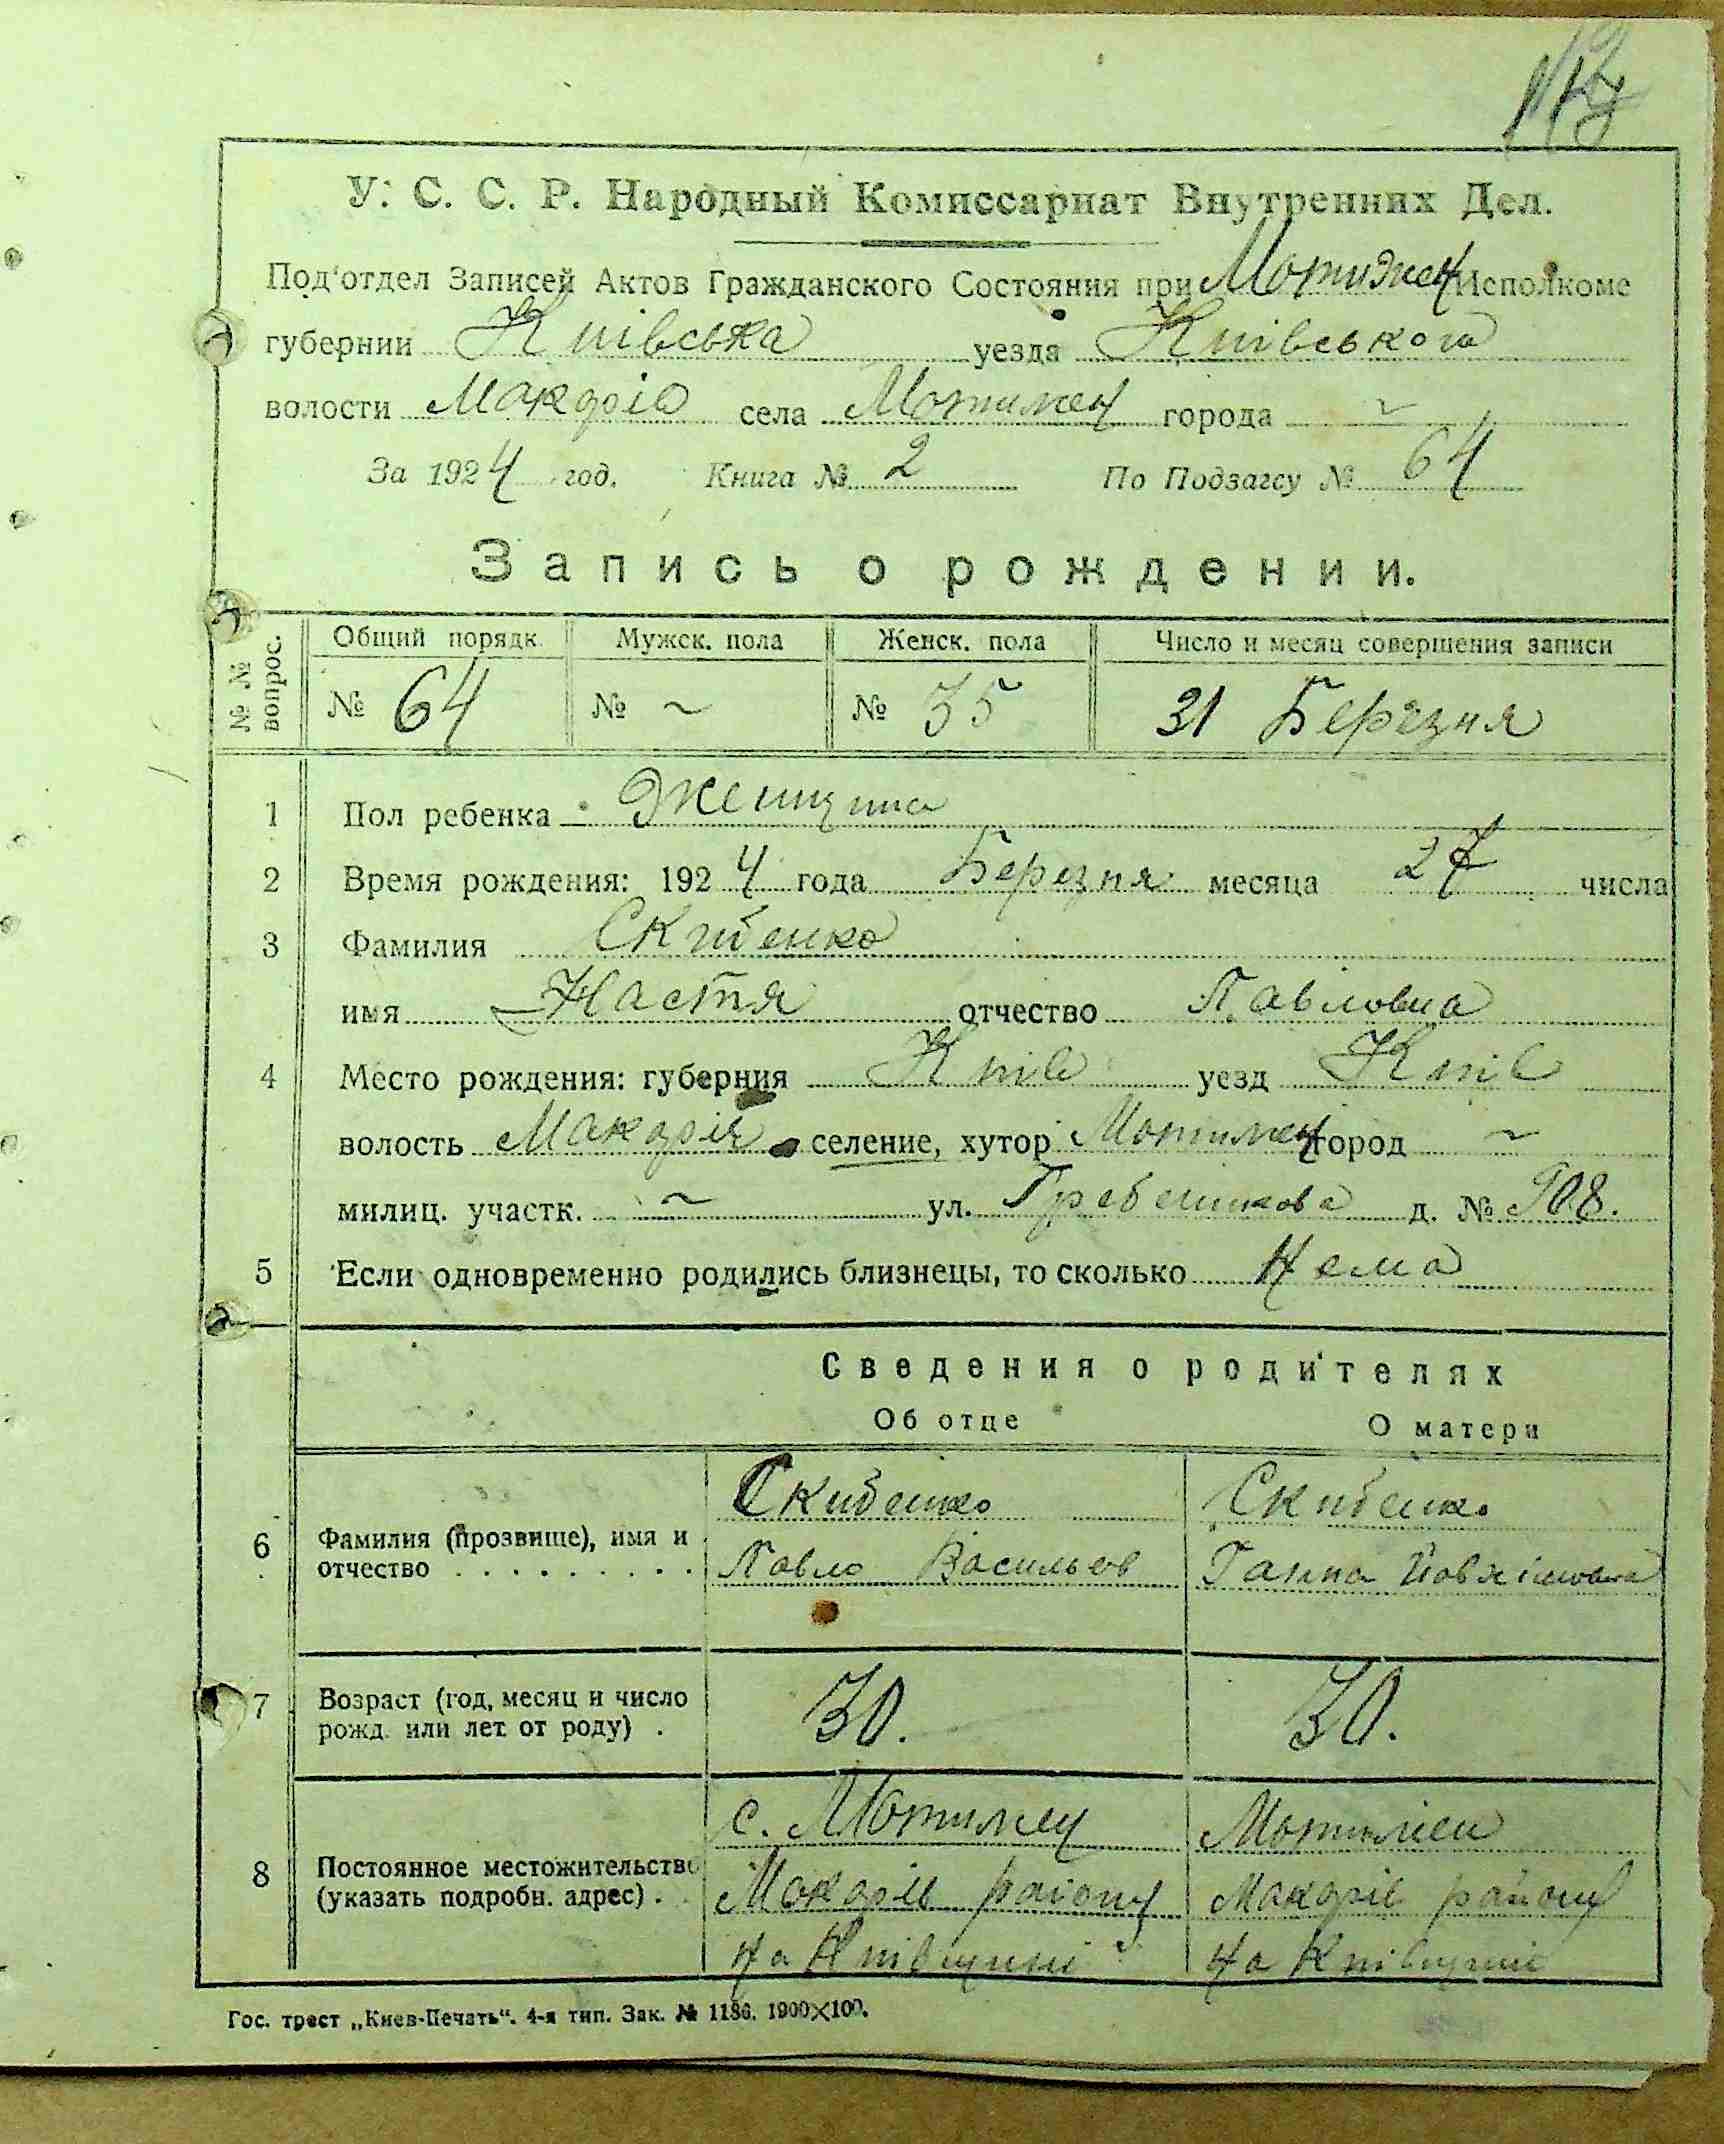 У. С. С. Р. Народный Комиссариат Внутренних Дел.
Под'отдел Записей Актов Гражданского Состояния при Мотижец Исполкоме
губернии Київська уезда Київського
волости Макарів села Мотижец города ~
За 1924 год. Книга № 2 По Подзагсу № 64
Запись о рождении.
№ № вопрос. Общий порядк. Мужск. пола Женск. пола Число и месяц совершения записи
№ 64 № ~ № 35 31 Березня
1 Пол ребенка Женщина
2 Время рождения: 1924 года Березня месяца 27 числа
3 Фамилия Скибенко
имя Настя отчество Павловна
4 Место рождения: губерния Київ уезд Київ
волость Макарів селение, хутор Мотижец город ~
милиц. участк. ~ ул. д. № 908.
5 Если одновременно родились близнецы, то сколько Нема
Сведения о родителях
Об отце О матери
Скибенко Скибенко
6 Фамилия (прозвище), имя и отчество . . . . . . . . . . Павло Васильов Ганна
7 Возраст (год, месяц и число рожд. или лет от роду) . 30. 30.
с. Мотижец Мотижец
8 Постоянное местожительство (указать подробн. адрес) . Макарів району Макарів району
на Київщині на Київщині
Гос. трест „Киев-Печать“. 4-я тип. Зак. № 1186. 1900×100.